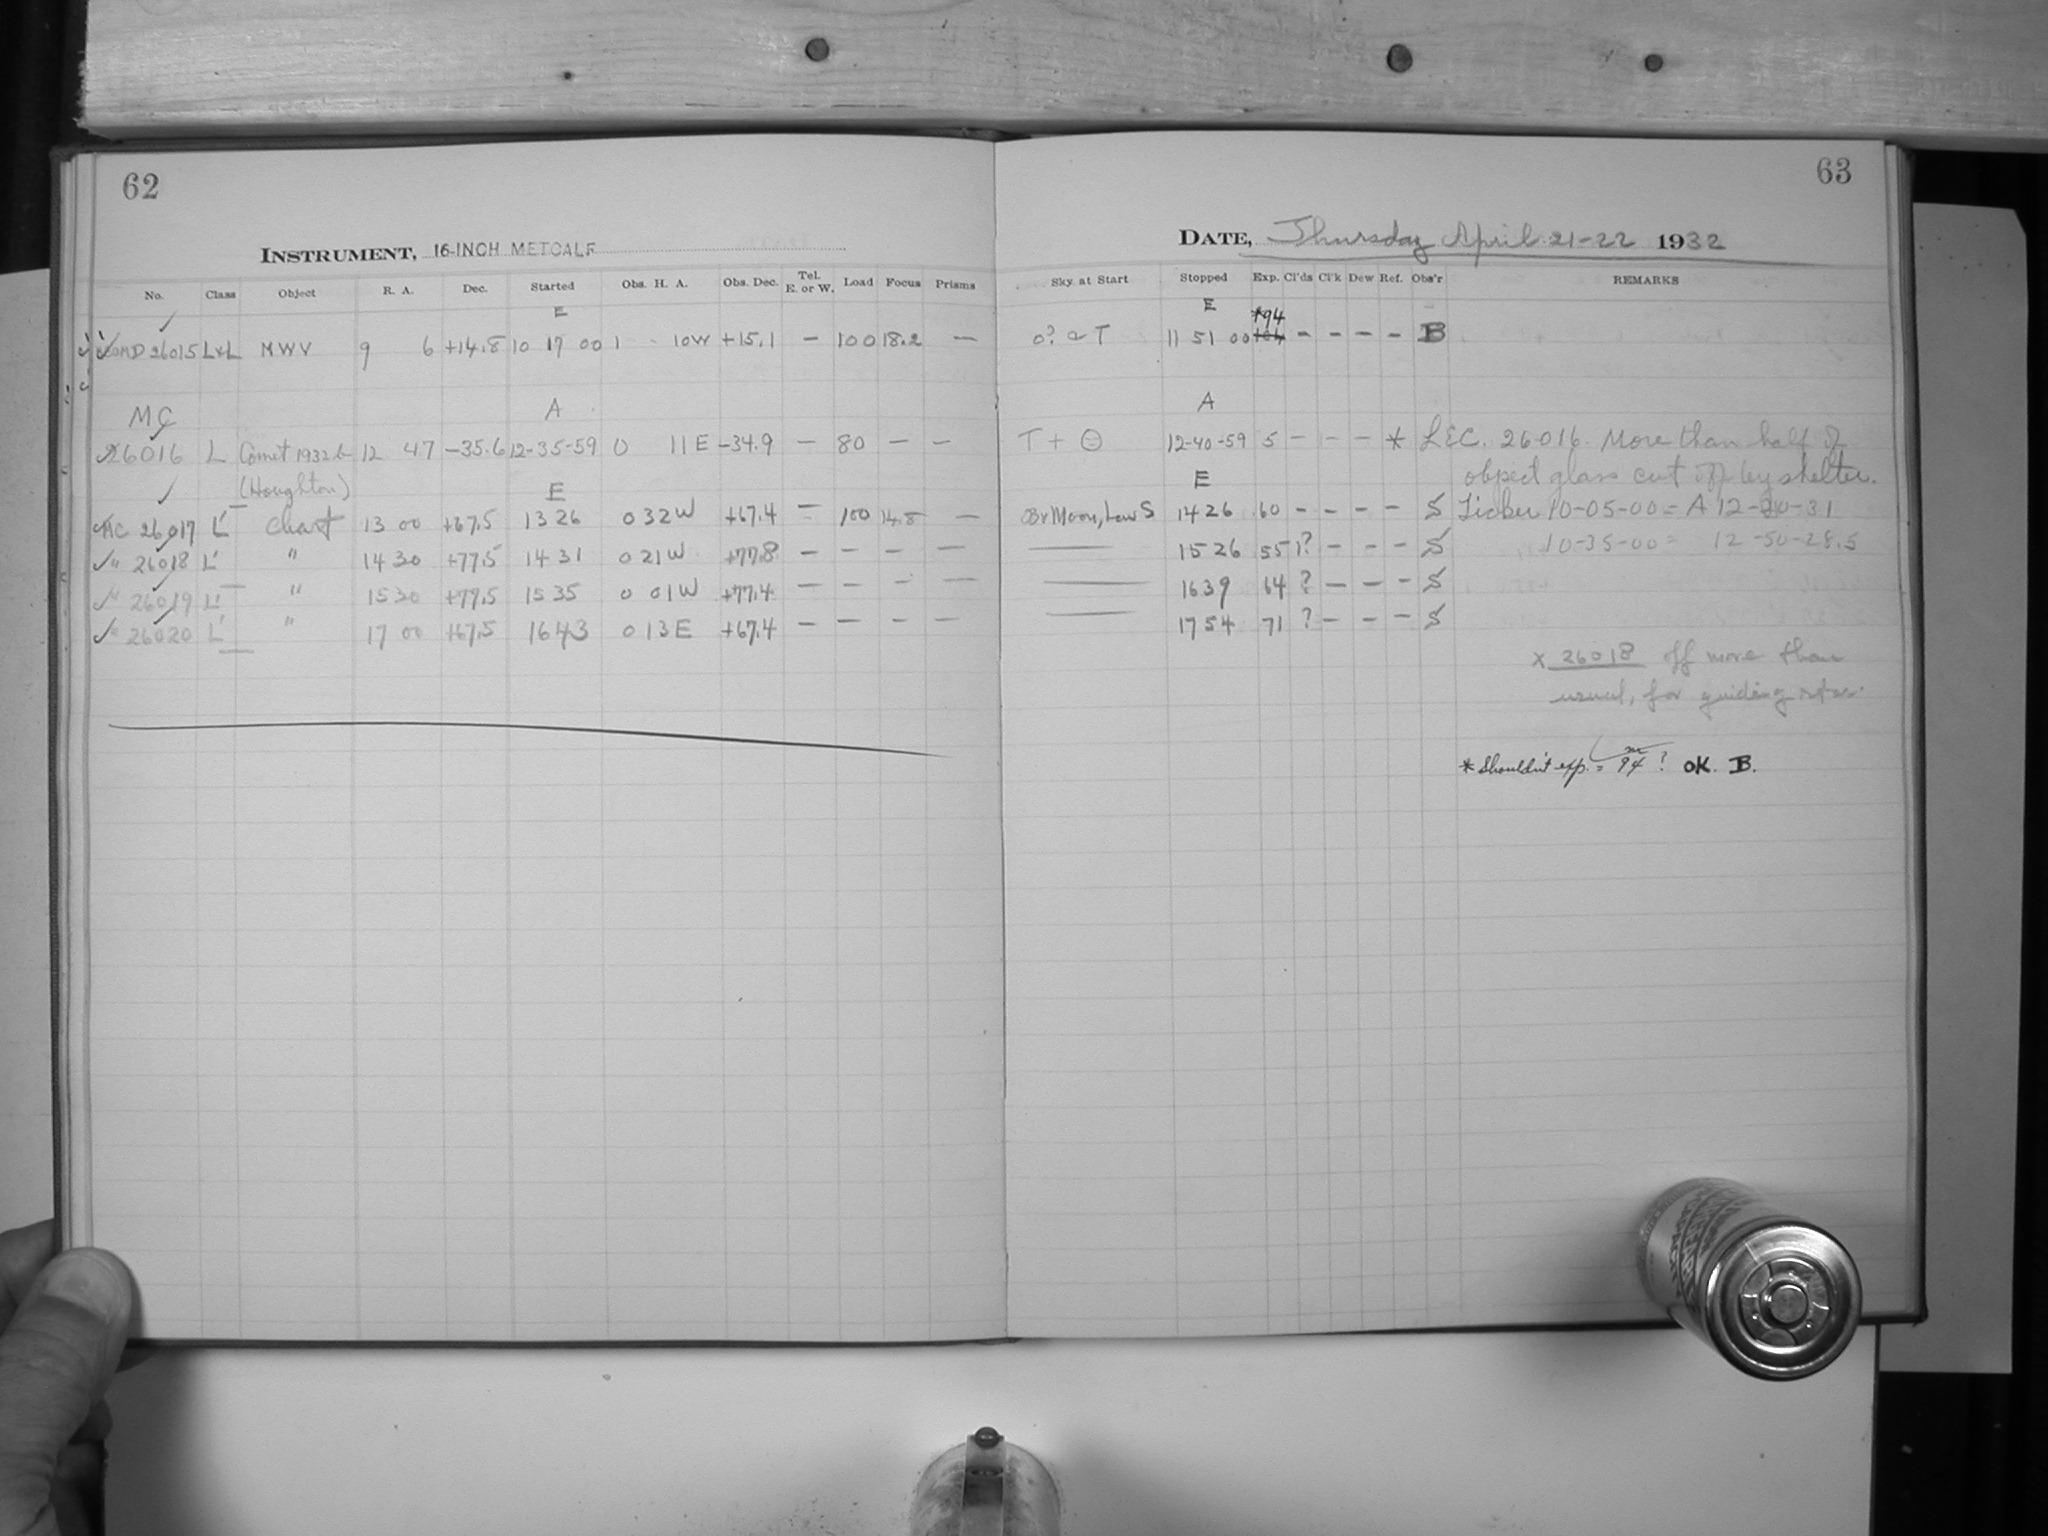 62
INSTRUMENT, 16-INCH METCALF
No. Class Object R. A. Dec. Started Obs. H. A. Obs. Dec. Tel. E. or W. Load Focus Prisms
E
26015 L+L MWV 9 6 +14.8 10 17 00 1 10W +15.1 — 100 18.2 —
MC A
26016 L Comet 1932b 12 47 -35.6 12-35-59 0 11E -34.9 — 80 — —
(Houghton) E
MC 26017 L' Chart 13 00 +67.5 13 26 0 32W +67.4 — 100 14.8 —
" 26018 L' " 14 30 +77.5 14 31 0 21W +77.8 — — — —
" 26019 L' " 15 30 +77.5 15 35 0 01W +77.4 — — — —
" 26020 L' " 17 00 +67.5 16 43 0 13E +67.4 — — — —
63
DATE, Thursday April 21-22 1932
Sky at Start Stopped Exp. Cl'ds Cl'k Dew Ref. Obs'r REMARKS
E *94
T 11 51 00 104 - - - - B
A
T + 12-40-59 5 - - - * LEC. 26016. More than half of
E object glass cut off by shelter.
Br Moon, Low S 14 26 60 - - - - S Ticker 10-05-00 = A 12-20-31
15 26 55 ? - - - S 10-35-00 = 12-50-28.5
16 39 64 ? - - - S
17 54 71 ? - - - S
x 26018 off more than
usual, for guiding star.
* Shouldn't exp. = 94m? OK. B.